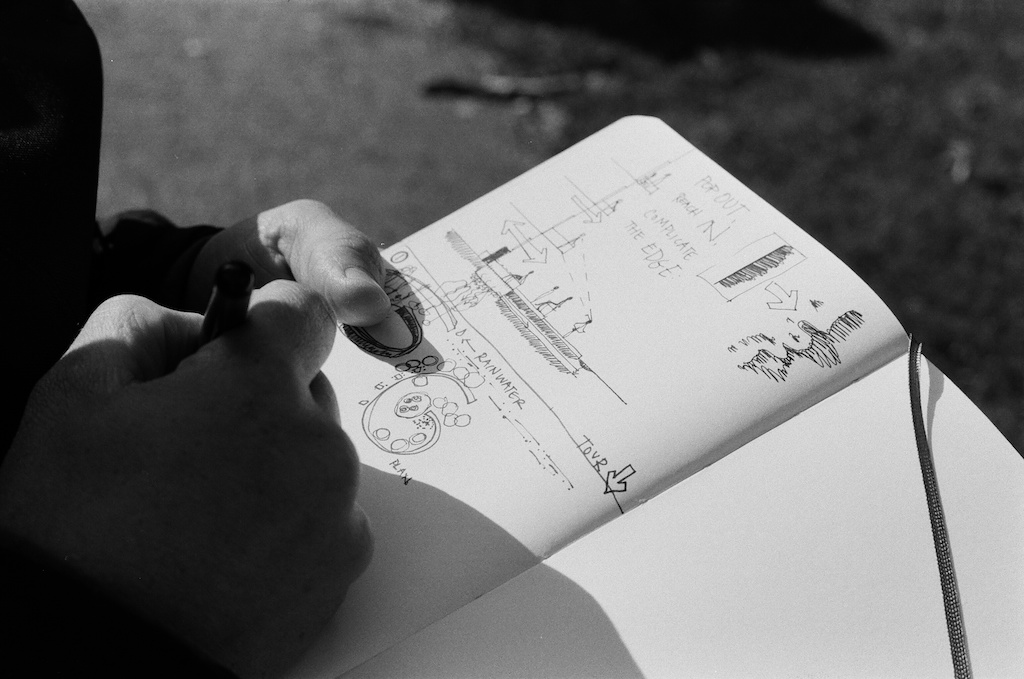 POP OUT
REACH IN,
COMPLICATE
THE EDGE
RAINWATER
PLAN
TOUR